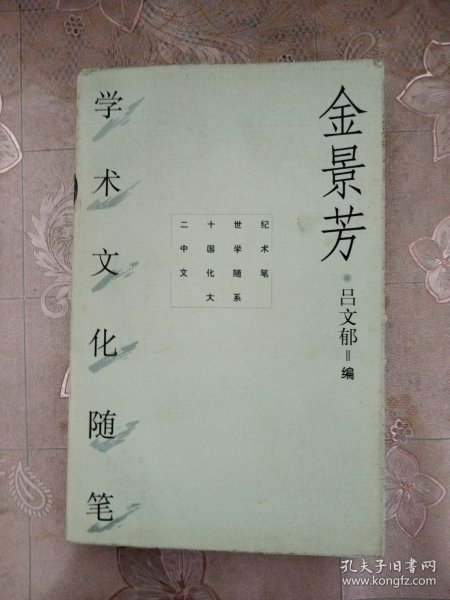 金景芳
吕文郁‖编
二十世纪
中国学术
文化随笔
大系
学术文化随笔
孔夫子旧书网
www.kongfz.com